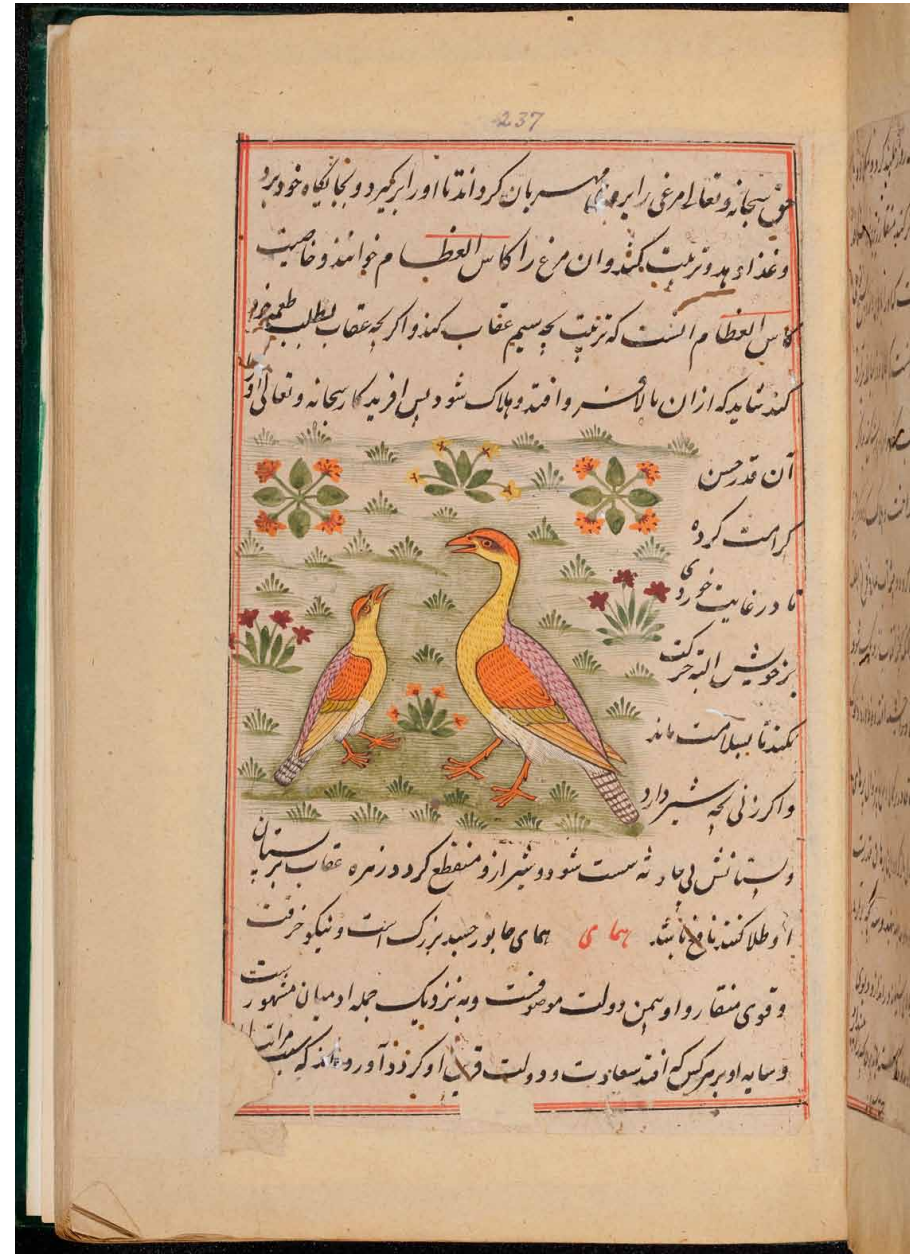 237
حق سبحانه و تعالی مرغی را برو مهربان کرداند تا او را برکیرد و بجایکاه خود برد
و غذا دهد و تربیت کند و ان مرغ را کاسر العظام خوانند و خاصیت
کاسر العظام انست که تربیت بچه سیم عقاب کند و اکر بچه عقاب بطلب طعمه خود
کند شاید که از ان بالا فرو افتد و هلاک شود پس افریدکار سبحانه و تعالی او را
آن قدر حس
کرامت کرده
تا در غایت خوردی
بر خویش البته حرکت
نکند تا بسلامت ماند
و اکر زنی بچه شیر دارد
و پستانش سست شود و شیر ازو منقطع کردد زهره عقاب بر پستان
او طلا کنند نافع باشد همای همای جانور جسد بزرک است و نیکو
و قوی منقار و او بیمن دولت موصوفست و به نزدیک جمله ادمیان مشهور است
و سایه او بر هر کس که افتد سعادت و دولت قرین او کردد آورده‌اند که